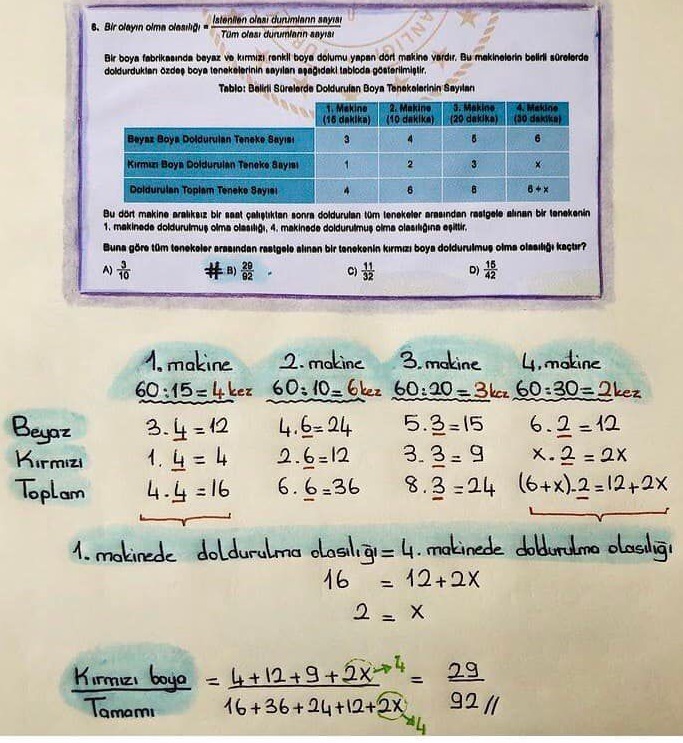 6. Bir olayın olma olasılığı = İstenilen olası durumların sayısı / Tüm olası durumların sayısı
Bir boya fabrikasında beyaz ve kırmızı renkli boya dolumu yapan dört makine vardır. Bu makinelerin belirli sürelerde
doldurdukları özdeş boya tenekelerinin sayıları aşağıdaki tabloda gösterilmiştir.
Tablo: Belirli Sürelerde Doldurulan Boya Tenekelerinin Sayıları
1. Makine (15 dakika) 2. Makine (10 dakika) 3. Makine (20 dakika) 4. Makine (30 dakika)
Beyaz Boya Doldurulan Teneke Sayısı 3 4 5 6
Kırmızı Boya Doldurulan Teneke Sayısı 1 2 3 x
Doldurulan Toplam Teneke Sayısı 4 6 8 6+x
Bu dört makine aralıksız bir saat çalıştıktan sonra doldurulan tüm tenekeler arasından rastgele alınan bir tenekenin
1. makinede doldurulmuş olma olasılığı, 4. makinede doldurulmuş olma olasılığına eşittir.
Buna göre tüm tenekeler arasından rastgele alınan bir tenekenin kırmızı boya doldurulmuş olma olasılığı kaçtır?
A) 3/10 # B) 29/92 C) 11/32 D) 15/42
1. makine 2. makine 3. makine 4. makine
60:15=4 kez 60:10=6 kez 60:20=3 kez 60:30=2 kez
Beyaz 3.4=12 4.6=24 5.3=15 6.2=12
Kırmızı 1.4=4 2.6=12 3.3=9 x.2=2x
Toplam 4.4=16 6.6=36 8.3=24 (6+x).2=12+2x
1. makinede doldurulma olasılığı = 4. makinede doldurulma olasılığı
16 = 12+2x
2 = x
Kırmızı boya / Tamamı = 4+12+9+2x→4 / 16+36+24+12+2x→4 = 29/92 //